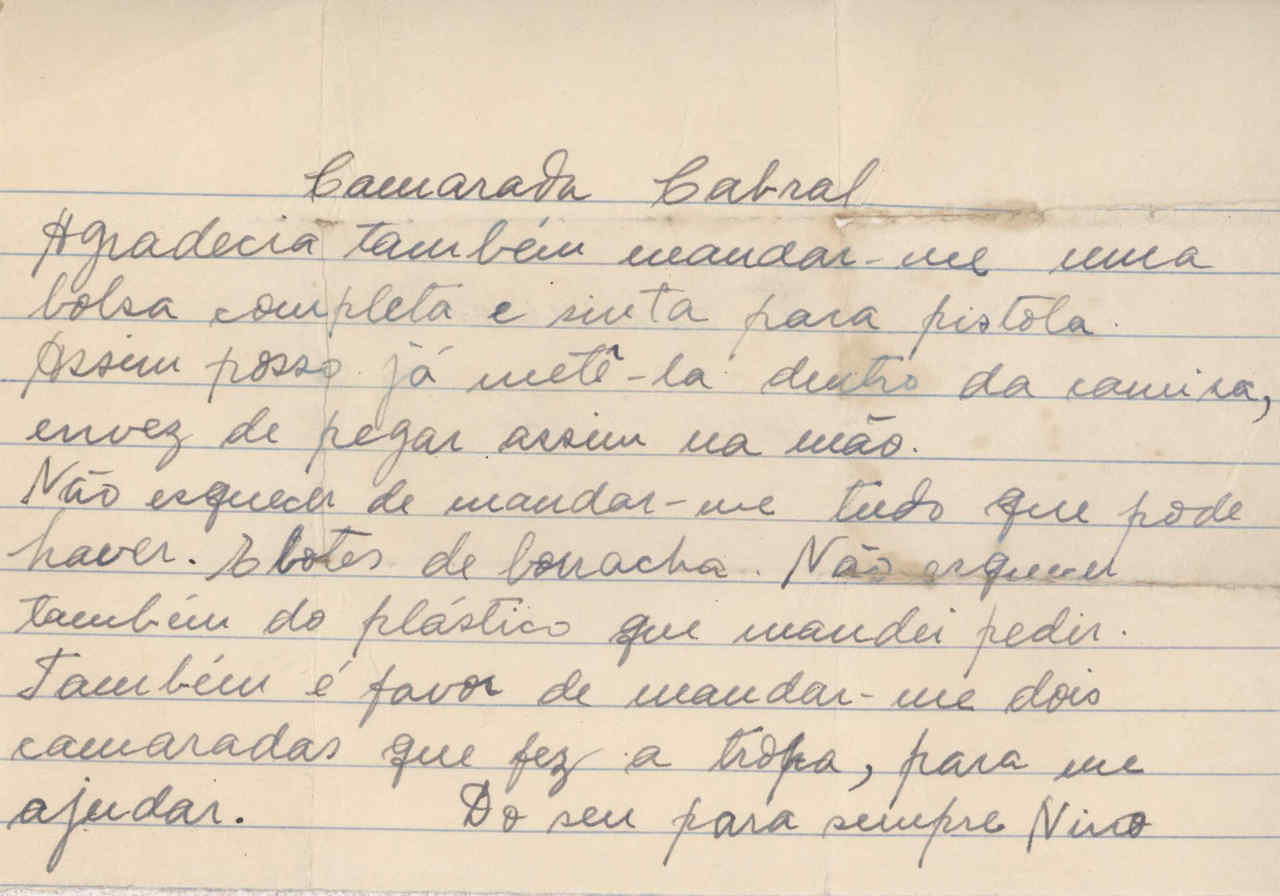 Camarada Cabral
Agradecia também mandar-me uma
bolsa completa e sinta para pistola.
Assim posso já metê-la dentro da camisa,
envez de pegar assim na mão.
Não esquecer de mandar-me tudo que pode
haver. E botes de borracha. Não esquecer
também do plástico que mandei pedir.
Também é favor de mandar-me dois
camaradas que fez a tropa, para me
ajudar. Do seu para sempre Nino